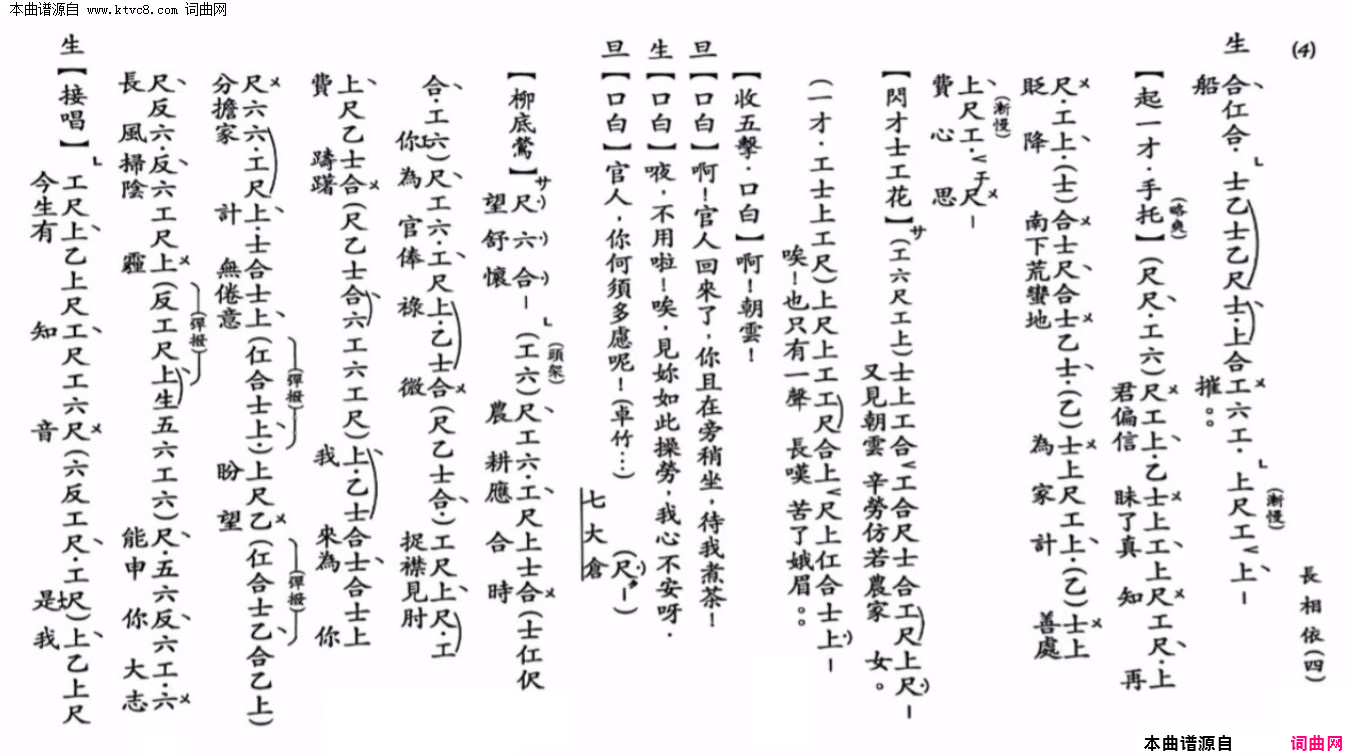 本曲谱源自 www.ktvc8.com 词曲网
(4)
長相依(四)
生
合仜合·士乙士乙尺士、上合工六工·上尺工上—
(漸慢)
船 摧。。
【起一才·手托】(尺尺·工六)尺工上·乙士上工上尺工尺·上
(略爽)
君偏信 昧了真 知 再
尺·工上·(士)合士尺合士乙士·(乙)士上尺工上·(乙)士上
貶降 南下荒蠻地 為家計 善處
上尺工·尺—
(漸慢)
費心思
【閃才士工花】サ(工六尺工上)士上工合工合尺士合工尺上尺—
又見朝雲 辛勞仿若農家 女。
(一才·工士上工尺)上尺上工工尺合上尺上仜合士上—
唉!也只有一聲 長嘆 苦了娥眉。。
【收五擊·口白】啊!朝雲!
旦【口白】啊!官人回來了,你且在旁稍坐,待我煮茶!
生【口白】㖡,不用啦!唉,見妳如此操勞,我心不安呀·
旦【口白】官人,你何須多慮呢!(卓竹…) 七大倉 (尺—)
【柳底鶯】サ尺六合—(工六)尺工六·工尺上士合(士仜伬
(頭架)
望舒懷 農耕應合時
合·工六)尺工六·工尺上·乙士合(尺乙士合·)工尺上尺·工
你為官俸祿微 捉襟見肘
上尺乙士合(尺乙士合六工六工尺)上·乙士合士合士上
費躊躇 我來為你
尺六六·工尺上·士合士上(仜合士上·)上尺乙(仜合士乙合乙上)
(彈撥) (彈撥)
分擔家計無倦意 盼望
尺反六·反六工尺上(反工尺上生五六工六)尺·五六反六工·六
(彈撥)
長風掃陰霾 能申你大志
生【接唱】工尺上乙上尺工尺工六尺(六反工尺·工尺)上乙上尺
今生有知音 是我
本曲谱源自 词曲网